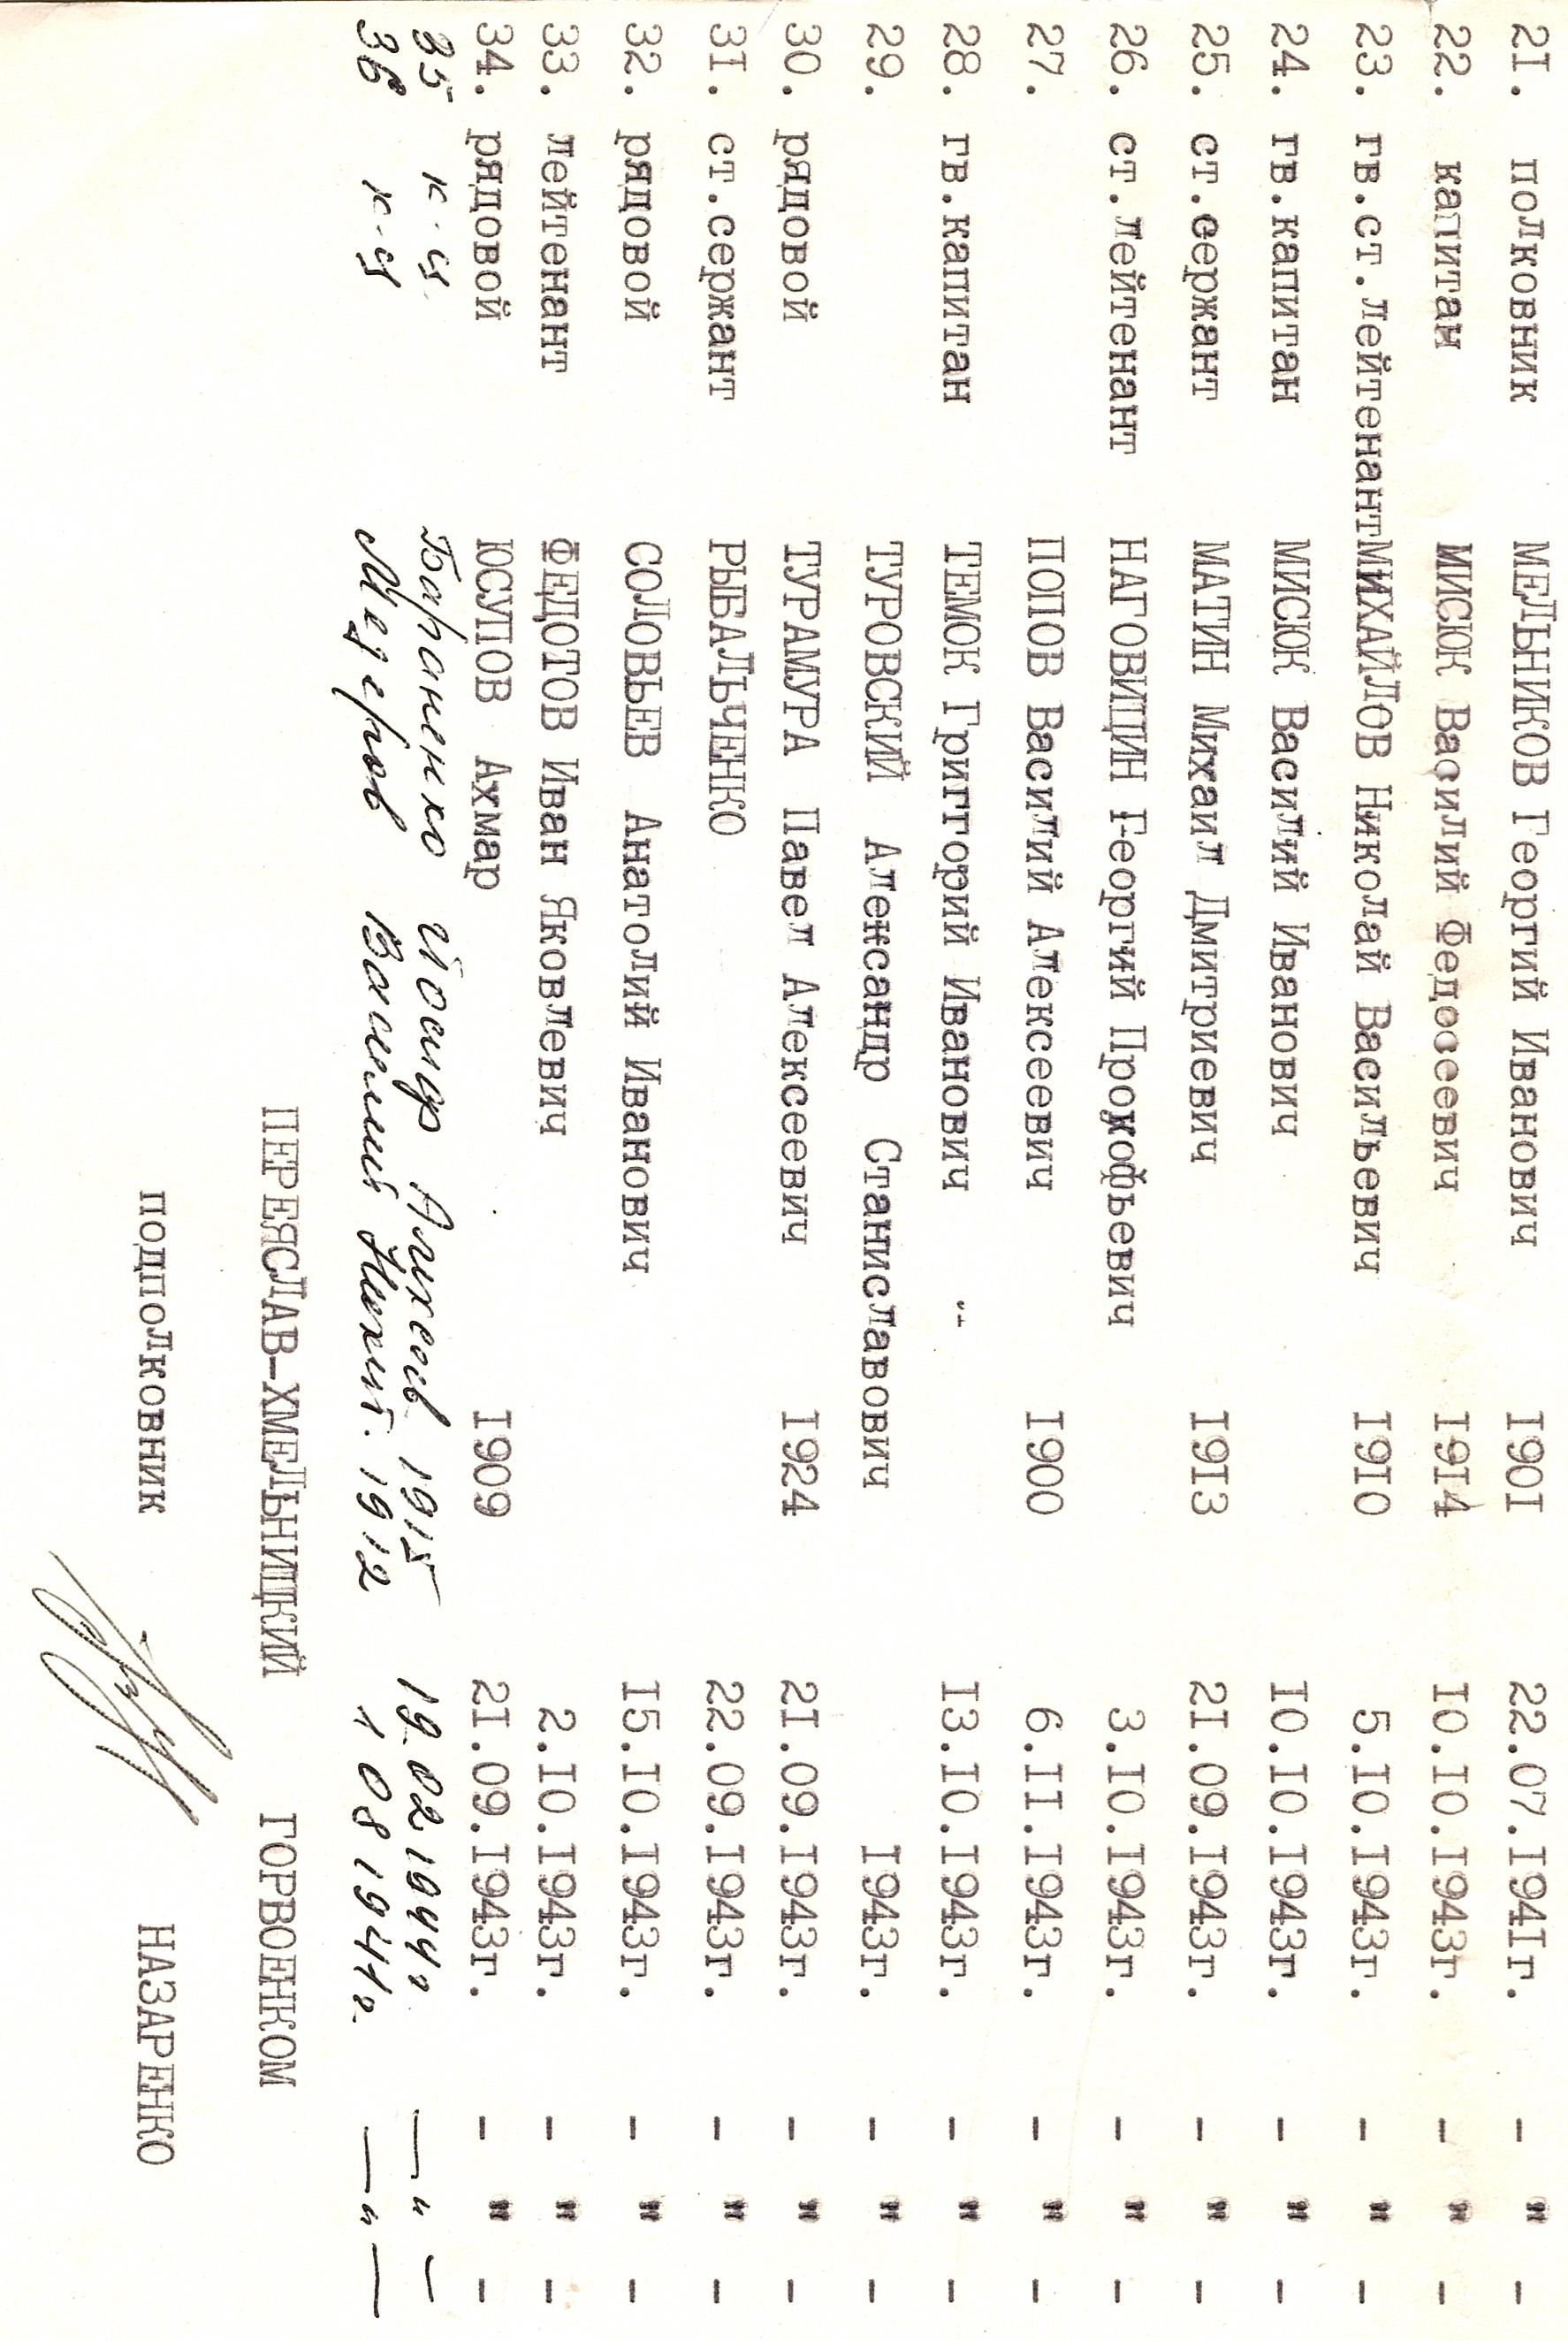 21. полковник МЕЛЬНИКОВ Георгий Иванович 1901 22.07.1941г. - " -
22. капитан МИСЮК Василий Федосеевич 1914 10.10.1943г. - " -
23. гв.ст.лейтенант МИХАЙЛОВ Николай Васильевич 1910 5.10.1943г. - " -
24. гв.капитан МИСЮК Василий Иванович 10.10.1943г. - " -
25. ст.сержант МАТИН Михаил Дмитриевич 1913 21.09.1943г. - " -
26. ст.лейтенант НАГОВИЦИН Георгий Прокофьевич 3.10.1943г. - " -
27. ПОПОВ Василий Алексеевич 1900 6.11.1943г. - " -
28. гв.капитан ТЕМОК Григгорий Иванович 13.10.1943г. - " -
29. ТУРОВСКИЙ Александр Станиславович 1943г. - " -
30. рядовой ТУРАМУРА Павел Алексеевич 1924 21.09.1943г. - " -
31. ст.сержант РЫБАЛЬЧЕНКО 22.09.1943г. - " -
32. рядовой СОЛОВЬЕВ Анатолий Иванович 15.10.1943г. - " -
33. лейтенант ФЕДОТОВ Иван Яковлевич 2.10.1943г. - " -
34. рядовой ЮСУПОВ Ахмар 1909 21.09.1943г. - " -
35 к-ц Бараненко Иосиф 1915 19.02 1944г — " —
36 к-ц Василий Никит. 1912 1 08 1941г. — " —
ПЕРЕЯСЛАВ-ХМЕЛЬНИЦКИЙ ГОРВОЕНКОМ
подполковник НАЗАРЕНКО